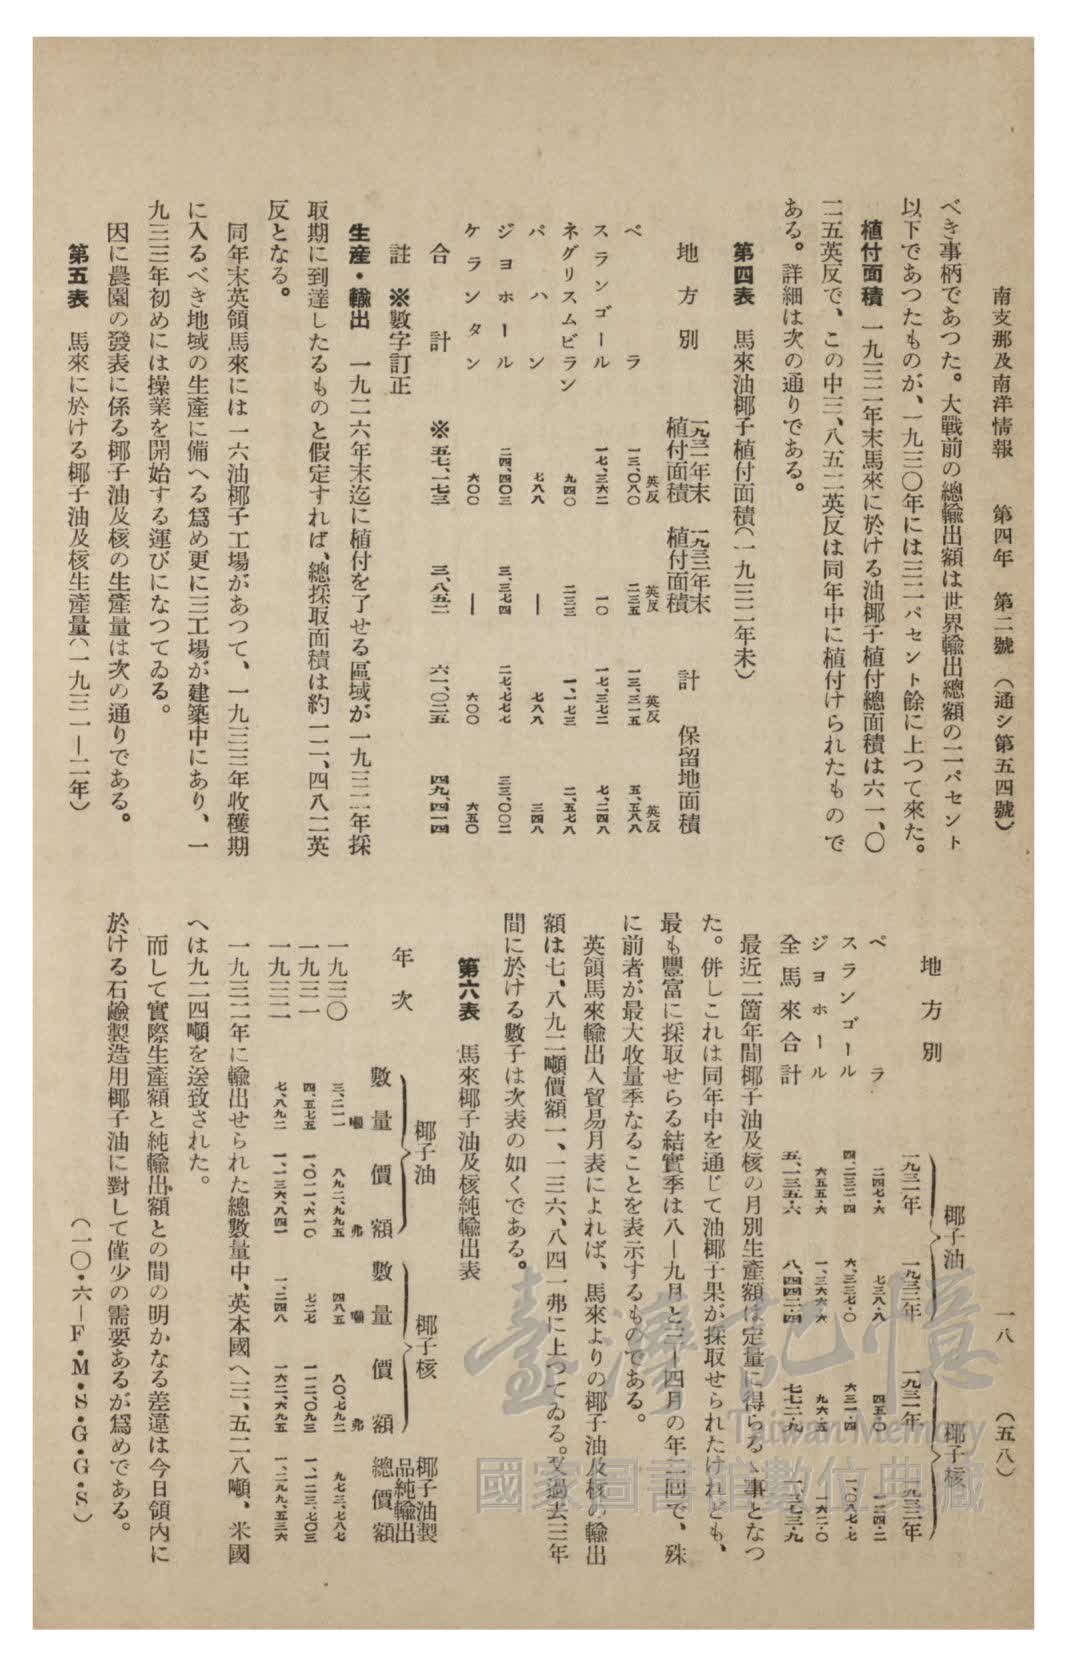 南支那及南洋情報　第四年　第二號　（通シ第五四號）
一八　（五八）
べき事柄であつた。大戰前の總輸出額は世界輸出總額の二パセント
以下であつたものが、一九三〇年には三二パセント餘に上つて來た。
植付面積　一九三二年末馬來に於ける油椰子植付總面積は六一、〇
二五英反で、この中三、八五二英反は同年中に植付けられたもので
ある。詳細は次の通りである。
第四表　馬來油椰子植付面積（一九三二年末）
地方別　一九三一年末植付面積　一九三二年末植付面積　計　保留地面積
英反　英反　英反　英反
ペラ　一三、〇八〇　二三五　一三、三一五　五、五八八
スランゴール　一七、三六二　一〇　一七、三七二　七、二四八
ネグリスムビラン　九四〇　二三三　一、一七三　二、五七八
パハン　七八八　—　七八八　三四八
ジヨホール　二四、四〇三　三、三七四　二七、七七七　三三、〇〇二
ケランタン　六〇〇　—　六〇〇　六五〇
合計　※五七、一七三　三、八五二　六一、〇二五　四九、四一四
註　※數字訂正
生産・輸出　一九二六年末迄に植付を了せる區域が一九三二年採
取期に到達したるものと假定すれば、總採取面積は約二一、四八二英
反となる。
同年末英領馬來には一六油椰子工場があつて、一九三三年收穫期
に入るべき地域の生産に備へる爲め更に三工場が建築中にあり、一
九三三年初めには操業を開始する運びになつてゐる。
因に農園の發表に係る椰子油及核の生産量は次の通りである。
第五表　馬來に於ける椰子油及核生産量（一九三一—二年）
地方別　椰子油　椰子核
一九三一年　一九三二年　一九三一年　一九三二年
ペラ　二四七・六　七三八・八　四五・〇　一二四・二
スランゴール　四、二三二・四　六、三三七・〇　六三一・四　一、〇八七・七
ジヨホール　六五五・六　一、三六六・六　九六・五　一六二・〇
全馬來合計　五、一三五・六　八、四四二・四　七七二・九　一、三七三・九
最近二箇年間椰子油及核の月別生産額は定量に得らるゝ事となつ
た。併しこれは同年中を通じて油椰子果が採取せられたけれども、
最も豐富に採取せらるる結實季は八—九月と三—四月の年二回で、殊
に前者が最大收量季なることを表示するものである。
英領馬來輸出入貿易月表によれば、馬來よりの椰子油及核の輸出
額は七、八九二噸價額一、一三六、八四一弗に上つてゐる。又過去三年
間に於ける數子は次表の如くである。
第六表　馬來椰子油及核純輸出表
年次　椰子油　椰子核　椰子油製品純輸出總價額
數量　價額　數量　價額
噸　弗　噸　弗
一九三〇　三、二一一　八九二、九九五　四八五　八〇、七九二　九七三、七八七
一九三一　四、五七五　一、〇一一、六一〇　七二七　一一二、〇九三　一、一二三、七〇三
一九三二　七、八九二　一、一三六、八四一　一、二四八　一六二、六九五　一、二九九、五三六
一九三二年に輸出せられた總數量中、英本國へ三、五二八噸、米國
へは九二四噸を送致された。
而して實際生産額と純輸出額との間の明かなる差違は今日領内に
於ける石鹼製造用椰子油に對して僅少の需要あるが爲めである。
（一〇・六—F・M・S・G・G・S）
臺灣記憶
Taiwan Memory
國家圖書館數位典藏